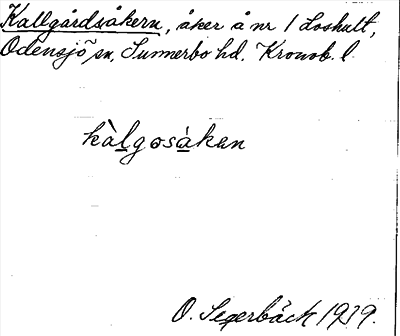 Kallgårdsåkern, åker å nr 1 Loshult,
Odensjö sn, Sunnerbo hd. Kronob. l.
kàlgosákan
O. Segerbäck 1939.